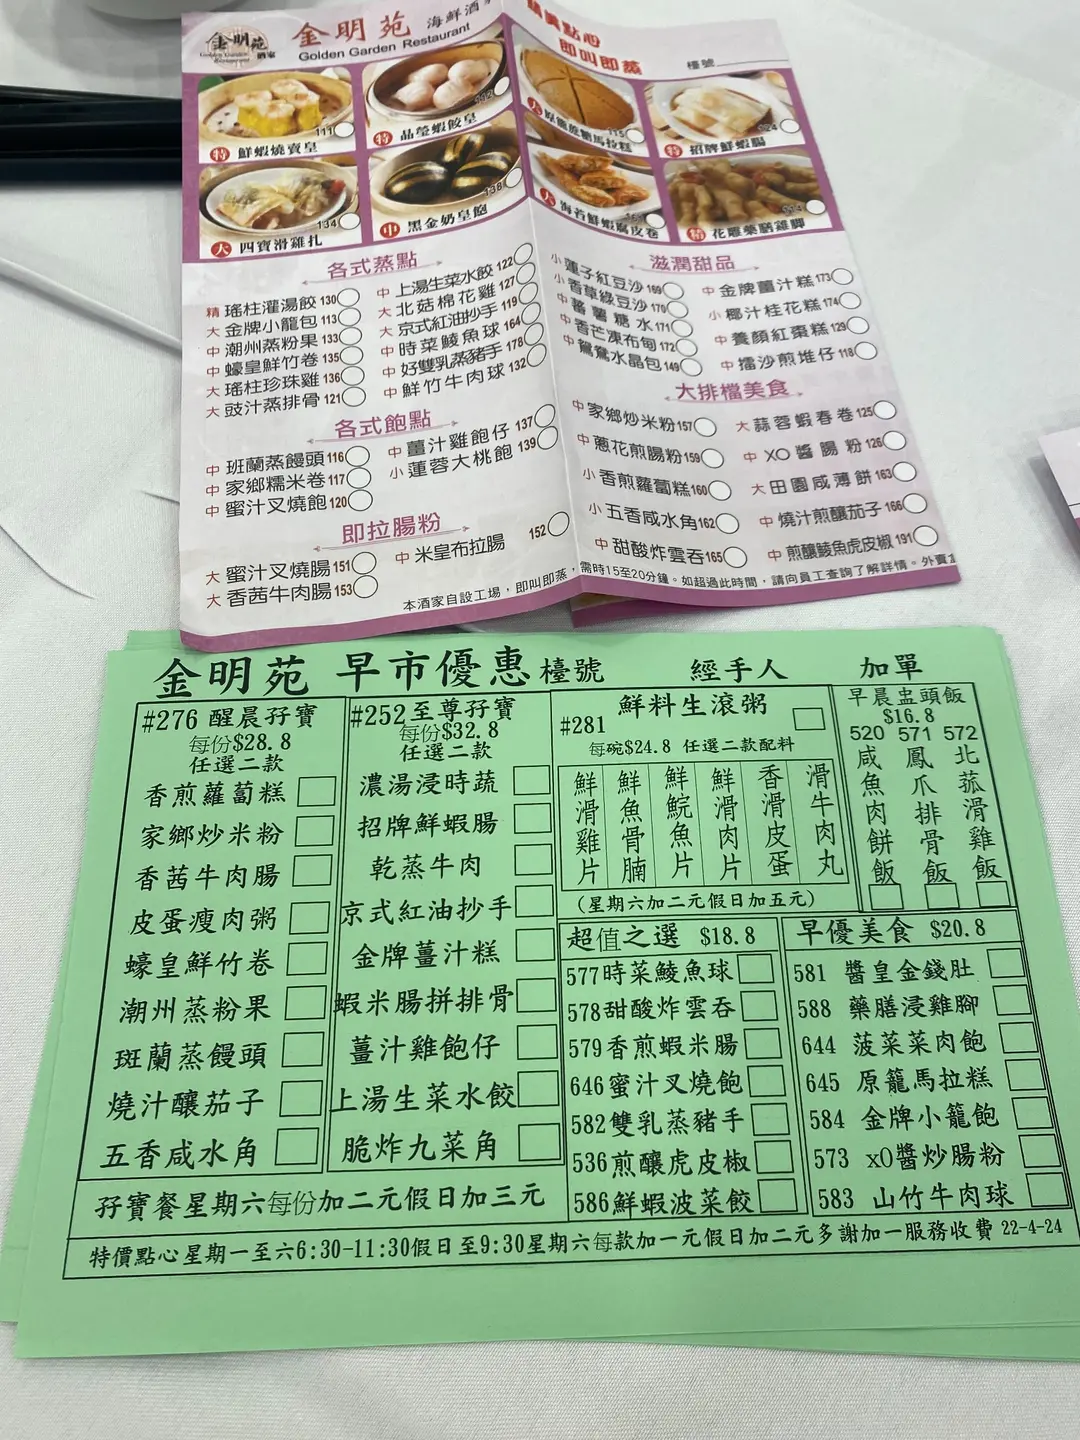 金明苑
Golden Garden
Restaurant
酒家
金明苑 海鮮酒
Golden Garden Restaurant
點心
即叫即蒸
檯號
特 鮮蝦燒賣皇 111
特 晶瑩蝦餃皇 112
大 原籠蔗糖馬拉糕 115
特 招牌鮮蝦腸 124
大 四寶滑雞扎 134
中 黑金奶皇飽 138
大 海苔鮮蝦腐皮卷
精 花雕藥膳雞腳 114
各式蒸點
精 瑤柱灌湯餃 130
大 金牌小龍包 113
中 潮州蒸粉果 133
中 蠔皇鮮竹卷 135
大 瑤柱珍珠雞 136
大 豉汁蒸排骨 121
中 上湯生菜水餃 122
大 北菇棉花雞 127
大 京式紅油抄手 119
中 時菜鯪魚球 164
中 好雙乳蒸豬手 178
中 鮮竹牛肉球 132
各式飽點
中 班蘭蒸饅頭 116
中 家鄉糯米卷 117
中 蜜汁叉燒飽 120
中 薑汁雞飽仔 137
小 蓮蓉大桃飽 139
即拉腸粉
大 蜜汁叉燒腸 151
大 香茜牛肉腸 153
中 米皇布拉腸 152
滋潤甜品
小 蓮子紅豆沙 169
小 香草綠豆沙 170
中 蕃薯糖水 171
中 香芒凍布甸 172
中 鴛鴦水晶包 149
中 金牌薑汁糕 173
小 椰汁桂花糕 174
中 養顏紅棗糕 129
中 擂沙煎堆仔 118
大排檔美食
中 家鄉炒米粉 157
中 蔥花煎腸粉 159
小 香煎蘿蔔糕 160
小 五香咸水角 162
中 甜酸炸雲吞 165
大 蒜蓉蝦春卷 125
中 XO醬腸粉 126
大 田園咸薄餅 163
中 燒汁煎釀茄子 166
中 煎釀鯪魚虎皮椒 191
本酒家自設工場，即叫即蒸，需時15至20分鐘。如超過此時間，請向員工查詢了解詳情。外賣
金明苑 早市優惠 檯號 經手人 加單
#276 醒晨孖寶
每份$28.8
任選二款
香煎蘿蔔糕
家鄉炒米粉
香茜牛肉腸
皮蛋瘦肉粥
蠔皇鮮竹卷
潮州蒸粉果
斑蘭蒸饅頭
燒汁釀茄子
五香咸水角
#252 至尊孖寶
每份$32.8
任選二款
濃湯浸時蔬
招牌鮮蝦腸
乾蒸牛肉
京式紅油抄手
金牌薑汁糕
蝦米腸拼排骨
薑汁雞飽仔
上湯生菜水餃
脆炸九菜角
孖寶餐星期六每份加二元假日加三元
#281 鮮料生滾粥
每碗$24.8 任選二款配料
鮮滑雞片
鮮魚骨腩
鮮鯇魚片
鮮滑肉片
香滑皮蛋
滑牛肉丸
(星期六加二元假日加五元)
早晨盅頭飯
$16.8
520 571 572
咸魚肉餅飯
鳳爪排骨飯
北菰滑雞飯
超值之選 $18.8
577時菜鯪魚球
578甜酸炸雲吞
579香煎蝦米腸
646蜜汁叉燒飽
582雙乳蒸豬手
536煎釀虎皮椒
586鮮蝦波菜餃
早優美食 $20.8
581 醬皇金錢肚
588 藥膳浸雞腳
644 菠菜菜肉飽
645 原籠馬拉糕
584 金牌小籠飽
573 xO醬炒腸粉
583 山竹牛肉球
特價點心星期一至六6:30-11:30假日至9:30星期六每款加一元假日加二元多謝加一服務收費 22-4-24